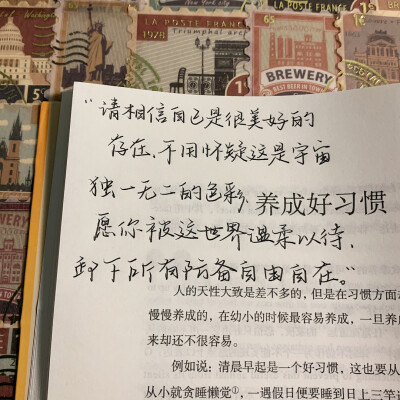 LA POSTE FRANCE
LA POSTE FRANCE
1928
Triumphal arch
BREWERY
BEST BEER IN TOWN
"请相信自己是很美好的
存在,不用怀疑这是宇宙
独一无二的色彩,
养成好习惯
愿你被这世界温柔以待,
卸下所有防备自由自在。"
人的天性大致是差不多的,但是在习惯方面
慢慢养成的,在幼小的时候最容易养成,一旦养
来却还不很容易。
例如说:清晨早起是一个好习惯,这也要从
从小就贪睡懒觉①,一遇假日便要睡到日上三竿